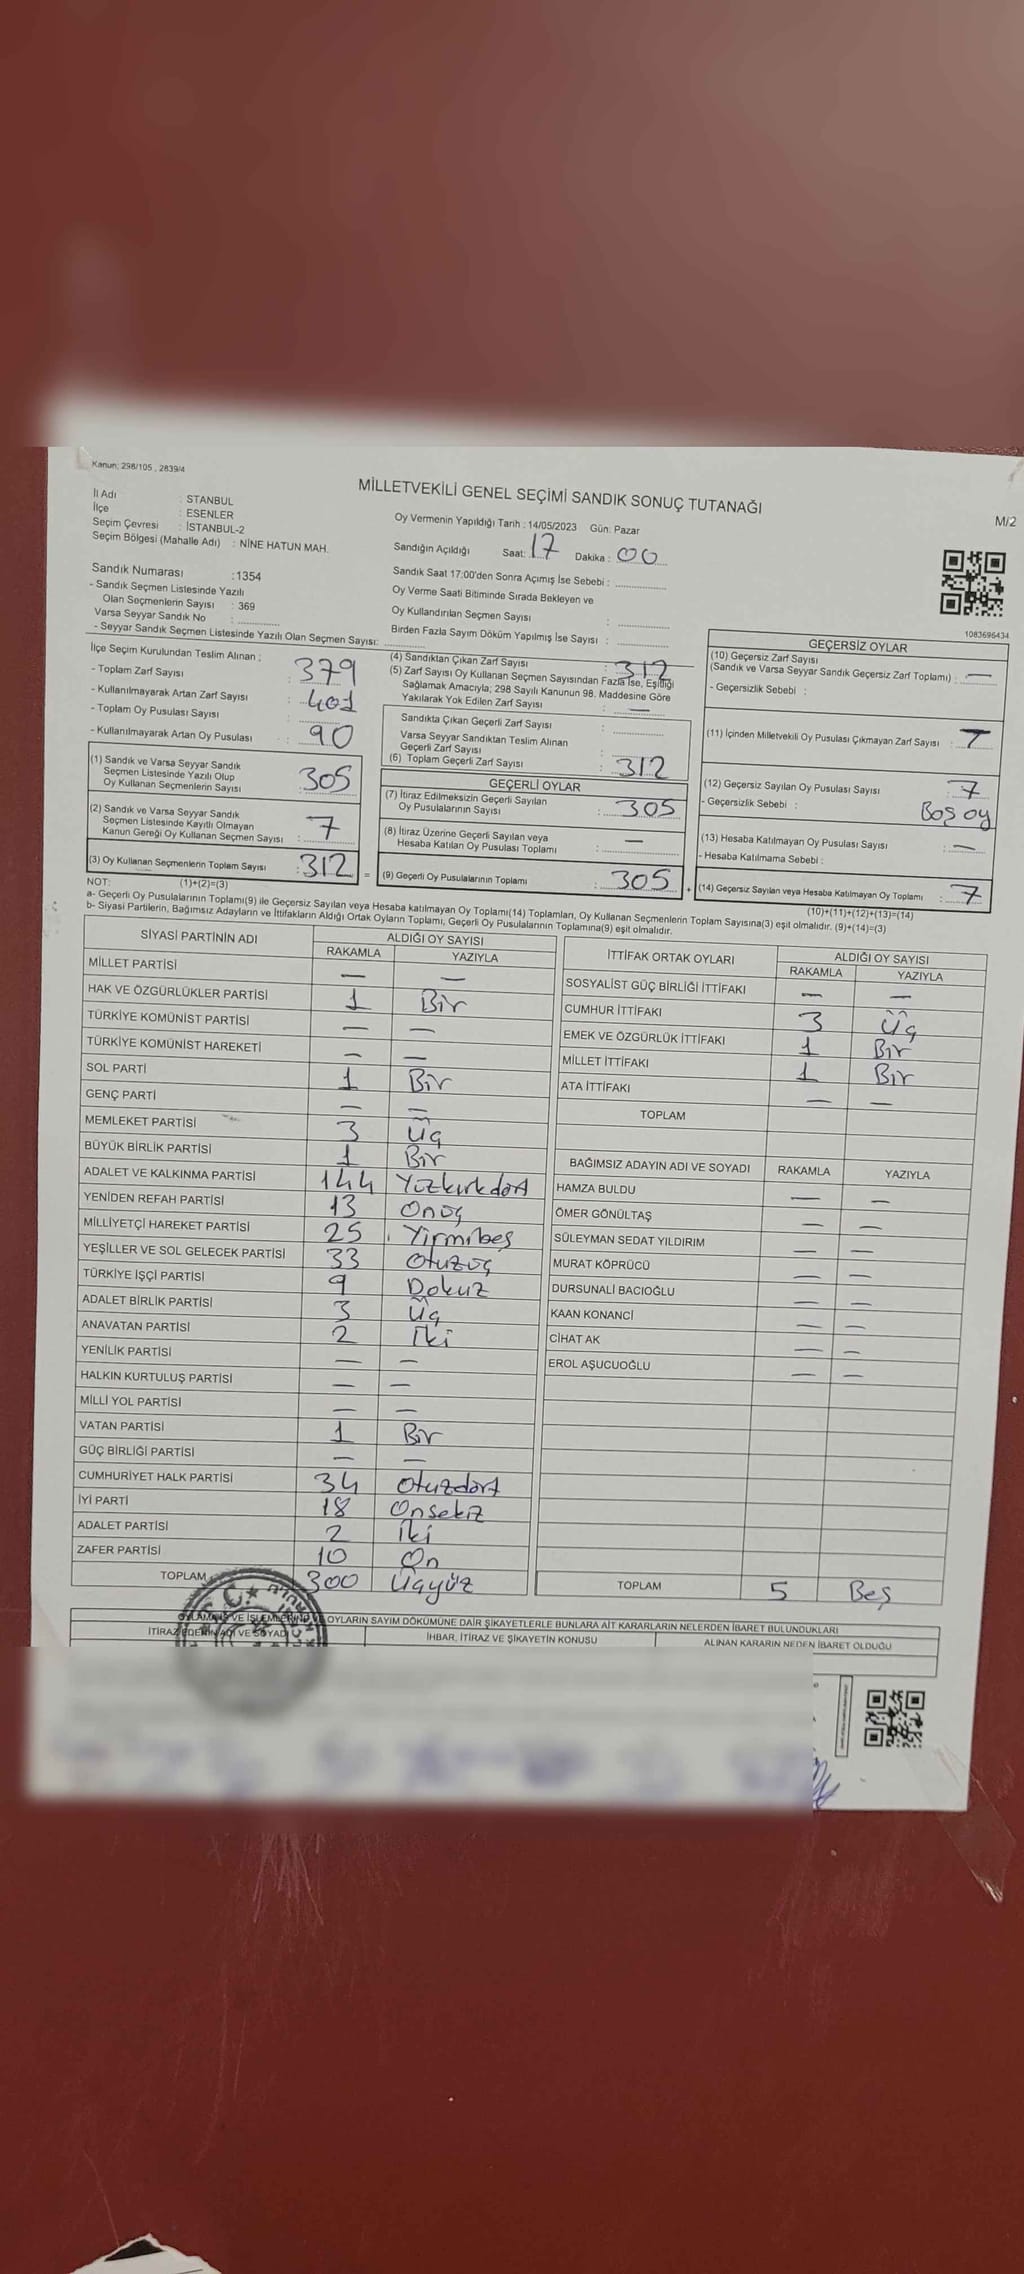 Kanun: 298/105 , 2839/4
MİLLETVEKİLİ GENEL SEÇİMİ SANDIK SONUÇ TUTANAĞI
M/2
İl Adı : STANBUL
İlçe : ESENLER
Seçim Çevresi : İSTANBUL-2
Seçim Bölgesi (Mahalle Adı) : NİNE HATUN MAH.
Oy Vermenin Yapıldığı Tarih : 14/05/2023 Gün: Pazar
Sandığın Açıldığı Saat: 17 Dakika : 00
Sandık Saat 17:00'den Sonra Açımış İse Sebebi :
Oy Verme Saati Bitiminde Sırada Bekleyen ve
Oy Kullandırılan Seçmen Sayısı :
Birden Fazla Sayım Döküm Yapılmış İse Sayısı :
Sandık Numarası :1354
- Sandık Seçmen Listesinde Yazılı
Olan Seçmenlerin Sayısı : 369
Varsa Seyyar Sandık No :
- Seyyar Sandık Seçmen Listesinde Yazılı Olan Seçmen Sayısı:
1083696434
İlçe Seçim Kurulundan Teslim Alınan :
- Toplam Zarf Sayısı : 379
- Kullanılmayarak Artan Zarf Sayısı :
- Toplam Oy Pusulası Sayısı : 401
- Kullanılmayarak Artan Oy Pusulası : 90
(1) Sandık ve Varsa Seyyar Sandık
Seçmen Listesinde Yazılı Olup
Oy Kullanan Seçmenlerin Sayısı : 305
(2) Sandık ve Varsa Seyyar Sandık
Seçmen Listesinde Kayıtlı Olmayan
Kanun Gereği Oy Kullanan Seçmen Sayısı : 7
(3) Oy Kullanan Seçmenlerin Toplam Sayısı : 312 =
(1)+(2)=(3)
(4) Sandıktan Çıkan Zarf Sayısı : 312
(5) Zarf Sayısı Oy Kullanan Seçmen Sayısından Fazla İse, Eşitliği
Sağlamak Amacıyla; 298 Sayılı Kanunun 98. Maddesine Göre
Yakılarak Yok Edilen Zarf Sayısı : —
Sandıkta Çıkan Geçerli Zarf Sayısı :
Varsa Seyyar Sandıktan Teslim Alınan
Geçerli Zarf Sayısı :
(6) Toplam Geçerli Zarf Sayısı : 312
GEÇERLİ OYLAR
(7) İtiraz Edilmeksizin Geçerli Sayılan
Oy Pusulalarının Sayısı : 305
(8) İtiraz Üzerine Geçerli Sayılan veya
Hesaba Katılan Oy Pusulası Toplamı : —
(9) Geçerli Oy Pusulalarının Toplamı : 305 +
GEÇERSİZ OYLAR
(10) Geçersiz Zarf Sayısı
(Sandık ve Varsa Seyyar Sandık Geçersiz Zarf Toplamı) : —
- Geçersizlik Sebebi :
(11) İçinden Milletvekili Oy Pusulası Çıkmayan Zarf Sayısı :
(12) Geçersiz Sayılan Oy Pusulası Sayısı : 7
- Geçersizlik Sebebi : Boş oy
(13) Hesaba Katılmayan Oy Pusulası Sayısı : —
- Hesaba Katılmama Sebebi :
(14) Geçersiz Sayılan veya Hesaba Katılmayan Oy Toplamı : 7
(10)+(11)+(12)+(13)=(14)
NOT:
a- Geçerli Oy Pusulalarının Toplamı(9) ile Geçersiz Sayılan veya Hesaba katılmayan Oy Toplamı(14) Toplamları, Oy Kullanan Seçmenlerin Toplam Sayısına(3) eşit olmalıdır. (9)+(14)=(3)
b- Siyasi Partilerin, Bağımsız Adayların ve İttifakların Aldığı Ortak Oyların Toplamı, Geçerli Oy Pusulalarının Toplamına(9) eşit olmalıdır.
SİYASİ PARTİNİN ADI ALDIĞI OY SAYISI
RAKAMLA YAZIYLA
MİLLET PARTİSİ — —
HAK VE ÖZGÜRLÜKLER PARTİSİ 1 Bir
TÜRKİYE KOMÜNİST PARTİSİ — —
TÜRKİYE KOMÜNİST HAREKETİ — —
SOL PARTİ 1 Bir
GENÇ PARTİ — —
MEMLEKET PARTİSİ 3 Üç
BÜYÜK BİRLİK PARTİSİ 1 Bir
ADALET VE KALKINMA PARTİSİ 144 Yüzkırkdört
YENİDEN REFAH PARTİSİ 13 Onüç
MİLLİYETÇİ HAREKET PARTİSİ 25 Yirmibeş
YEŞİLLER VE SOL GELECEK PARTİSİ 33 Otuzüç
TÜRKİYE İŞÇİ PARTİSİ 9 Dokuz
ADALET BİRLİK PARTİSİ 3 Üç
ANAVATAN PARTİSİ 2 İki
YENİLİK PARTİSİ — —
HALKIN KURTULUŞ PARTİSİ — —
MİLLİ YOL PARTİSİ — —
VATAN PARTİSİ 1 Bir
GÜÇ BİRLİĞİ PARTİSİ — —
CUMHURİYET HALK PARTİSİ 34 Otuzdört
İYİ PARTİ 18 Onsekiz
ADALET PARTİSİ 2 İki
ZAFER PARTİSİ 10 On
TOPLAM 300 Üçyüz
İTTİFAK ORTAK OYLARI ALDIĞI OY SAYISI
RAKAMLA YAZIYLA
SOSYALİST GÜÇ BİRLİĞİ İTTİFAKI — —
CUMHUR İTTİFAKI 3 Üç
EMEK VE ÖZGÜRLÜK İTTİFAKI 1 Bir
MİLLET İTTİFAKI 1 Bir
ATA İTTİFAKI — —
TOPLAM
BAĞIMSIZ ADAYIN ADI VE SOYADI RAKAMLA YAZIYLA
HAMZA BULDU — —
ÖMER GÖNÜLTAŞ — —
SÜLEYMAN SEDAT YILDIRIM — —
MURAT KÖPRÜCÜ — —
DURSUNALİ BACIOĞLU — —
KAAN KONANCİ — —
CİHAT AK — —
EROL AŞUCUOĞLU — —
TOPLAM 5 Beş
OYLAMA İŞ VE İŞLEMLERİNE VE OYLARIN SAYIM DÖKÜMÜNE DAİR ŞİKAYETLERLE BUNLARA AİT KARARLARIN NELERDEN İBARET BULUNDUKLARI
İTİRAZ EDENİN ADI VE SOYADI İHBAR, İTİRAZ VE ŞİKAYETİN KONUSU ALINAN KARARIN NEDEN İBARET OLDUĞU